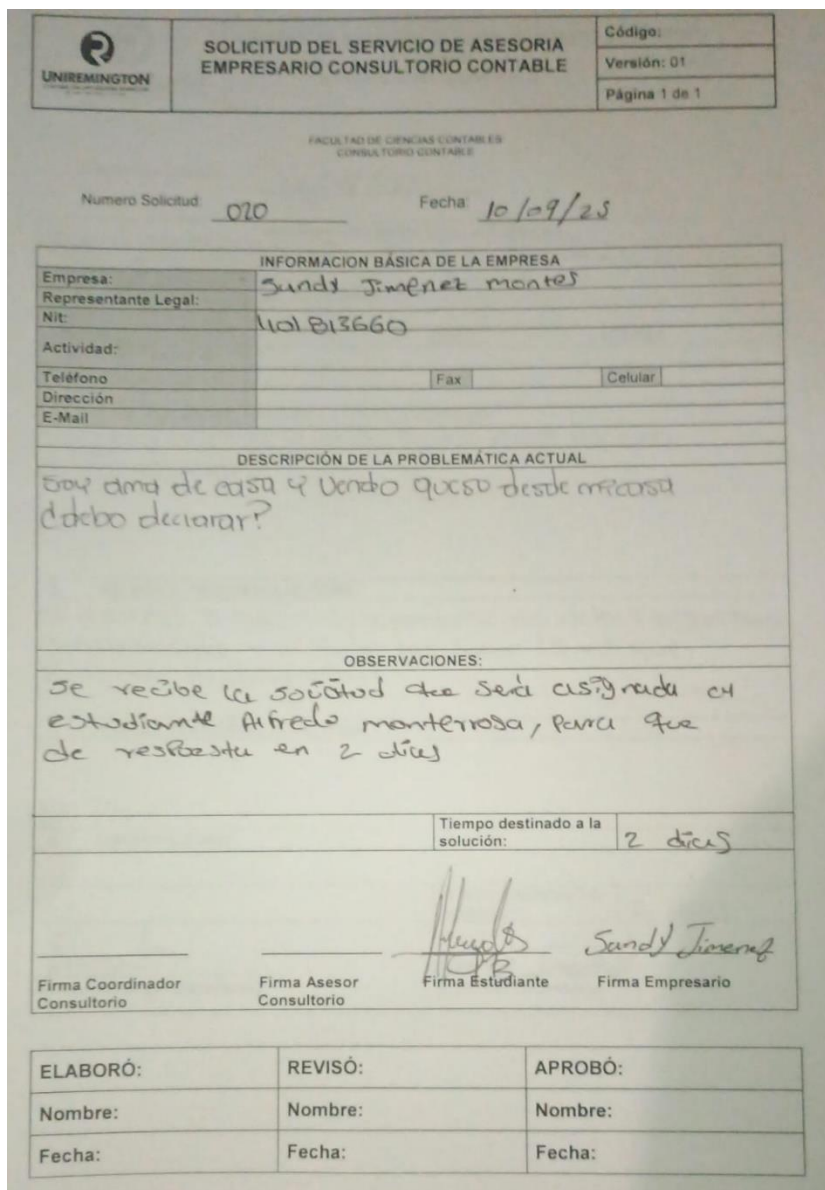 UNIREMINGTON
SOLICITUD DEL SERVICIO DE ASESORIA
EMPRESARIO CONSULTORIO CONTABLE
Código:
Versión: 01
Página 1 de 1
FACULTAD DE CIENCIAS CONTABLES
CONSULTORIO CONTABLE
Numero Solicitud: 020
Fecha: 10/09/25
INFORMACION BÁSICA DE LA EMPRESA
Empresa: Sundy Jimenez montes
Representante Legal:
Nit: 1101813660
Actividad:
Teléfono Fax Celular
Dirección
E-Mail
DESCRIPCIÓN DE LA PROBLEMÁTICA ACTUAL
Soy ama de casa y Vendo queso desde mi casa
¿debo declarar?
OBSERVACIONES:
se recibe la solicitud será asignada
estudiante Alfredo monterrosa, para que
de respuesta en 2 dias
Tiempo destinado a la
solución: 2 dias
Sandy Jimenez
Firma Coordinador
Consultorio
Firma Asesor
Consultorio
Firma Estudiante
Firma Empresario
ELABORÓ: REVISÓ: APROBÓ:
Nombre: Nombre: Nombre:
Fecha: Fecha: Fecha: